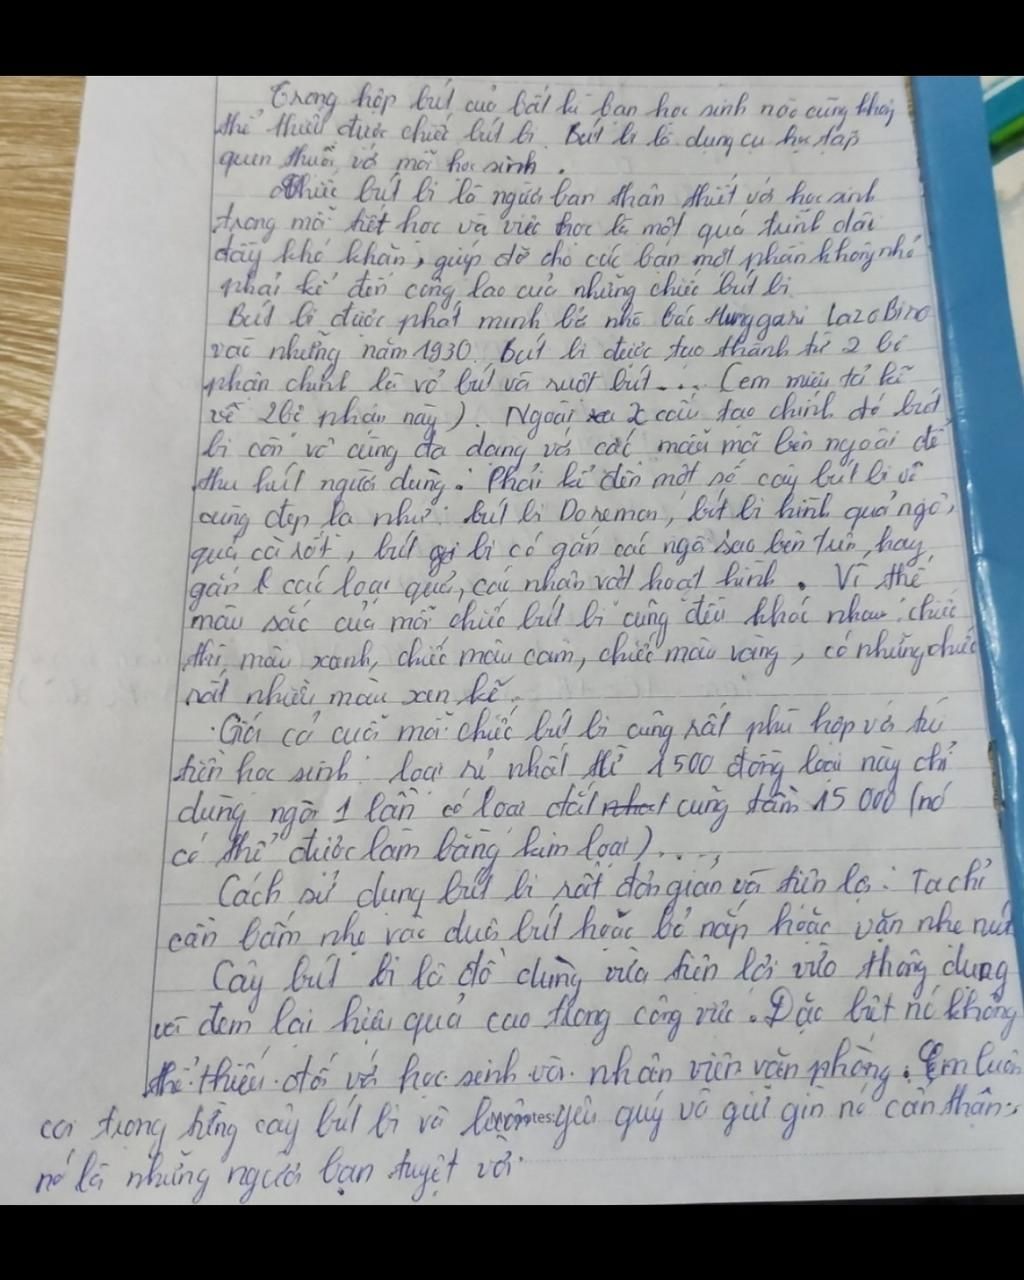 Trong hộp bút của bất kì bạn học sinh nào cũng không
thể thiếu được chiếc bút bi. Bút bi là dụng cụ học tập
quen thuộc với mỗi học sinh.
Chiếc bút bi là người bạn thân thiết với học sinh
trong mỗi tiết học và việc học là một quá trình dài
đầy khó khăn, giúp đỡ cho các bạn một phần không nhỏ
phải kể đến công lao của những chiếc bút bi.
Bút bi được phát minh bởi nhà báo Hunggari Lazo Biro
vào những năm 1930. Bút bi được tạo thành từ 2 bộ
phận chính là vỏ bút và ruột bút... (em miêu tả kĩ
về 2 bộ phận này). Ngoài 2 cấu tạo chính đó bút
bi còn vô cùng đa dạng với các mẫu mã bên ngoài để
thu hút người dùng. Phải kể đến một số cây bút bi vô
cùng đẹp là như: bút bi Doremon, bút bi hình quả ngô,
quả cà rốt, bút bi có gắn các ngôi sao bên trên, hay
gắn các loại quả, các nhân vật hoạt hình. Vì thế
màu sắc của mỗi chiếc bút bi cũng đều khác nhau: chiếc
thì màu xanh, chiếc màu cam, chiếc màu vàng, có những chiếc
rất nhiều màu xen kẽ.
Giá cả cuả mỗi chiếc bút bi cũng rất phù hợp với túi
tiền học sinh: loại rẻ nhất thì 1500 đồng loại này chỉ
dùng ngòi 1 lần có loại đắt cũng tầm 15 000 (nó
có thể được làm bằng kim loại)....,
Cách sử dụng bút bi rất đơn giản và tiện lợi: Ta chỉ
cần bấm nhẹ vào đuôi bút hoặc bỏ nắp hoặc vặn nhẹ nút
Cây bút bi là đồ dùng vừa tiện lợi vừa thông dụng
và đem lại hiệu quả cao trong công việc. Đặc biệt nó không
thể thiếu đối với học sinh và nhân viên văn phòng. Em luôn
coi trọng từng cây bút bi và luôn yêu quý và giữ gìn nó cẩn thận
nó là những người bạn tuyệt vời.